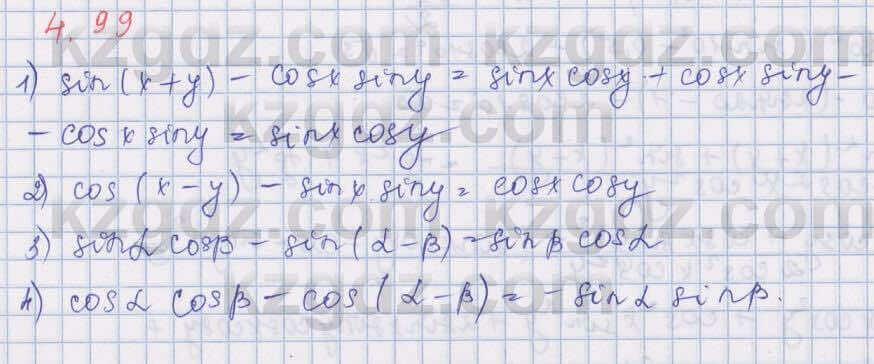 4.99
1) sin(x+y) - cosx siny = sinx cosy + cosx siny -
- cosx siny = sinx cosy
2) cos (x-y) - sinx siny = cosx cosy
3) sinα cosβ - sin(α-β) = sinβ cosα
4) cosα cosβ - cos(α-β) = - sinα sinβ.
kzgdz.com kzgdz.com
kzgdz.com
kzgdz.com kzgdz.com
kzgdz.com